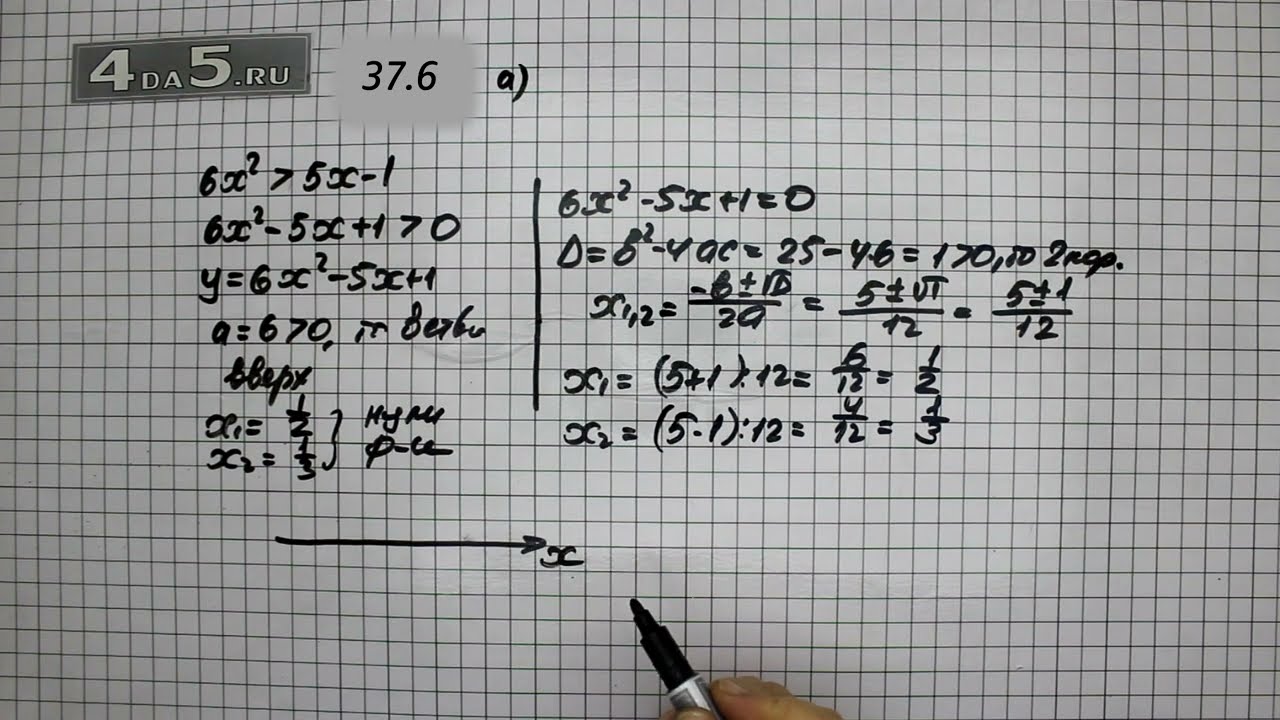 4DA5.RU 37.6 а)
6x² > 5x-1
6x² - 5x + 1 > 0
y = 6x² - 5x + 1
a = 6 > 0, т ветви
вверх
x₁ = 1/2
x₂ = 1/3 } нули ф-ии
x
6x² - 5x + 1 = 0
D = b² - 4ac = 25 - 4·6 = 1 > 0, то 2 кор.
x₁,₂ = (-b ± √D)/2a = (5 ± √1)/12 = (5 ± 1)/12
x₁ = (5+1):12 = 6/12 = 1/2
x₂ = (5-1):12 = 4/12 = 1/3